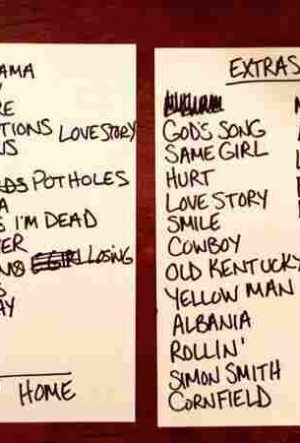 AMA
RE
TIONS LOVE STORY
US
POTHOLES
A
S I'M DEAD
ER
LOSING
S
AY
HOME
EXTRAS
GOD'S SONG
SAME GIRL
HURT
LOVE STORY
SMILE
COWBOY
OLD KENTUCKY
YELLOW MAN
ALBANIA
ROLLIN'
SIMON SMITH
CORNFIELD